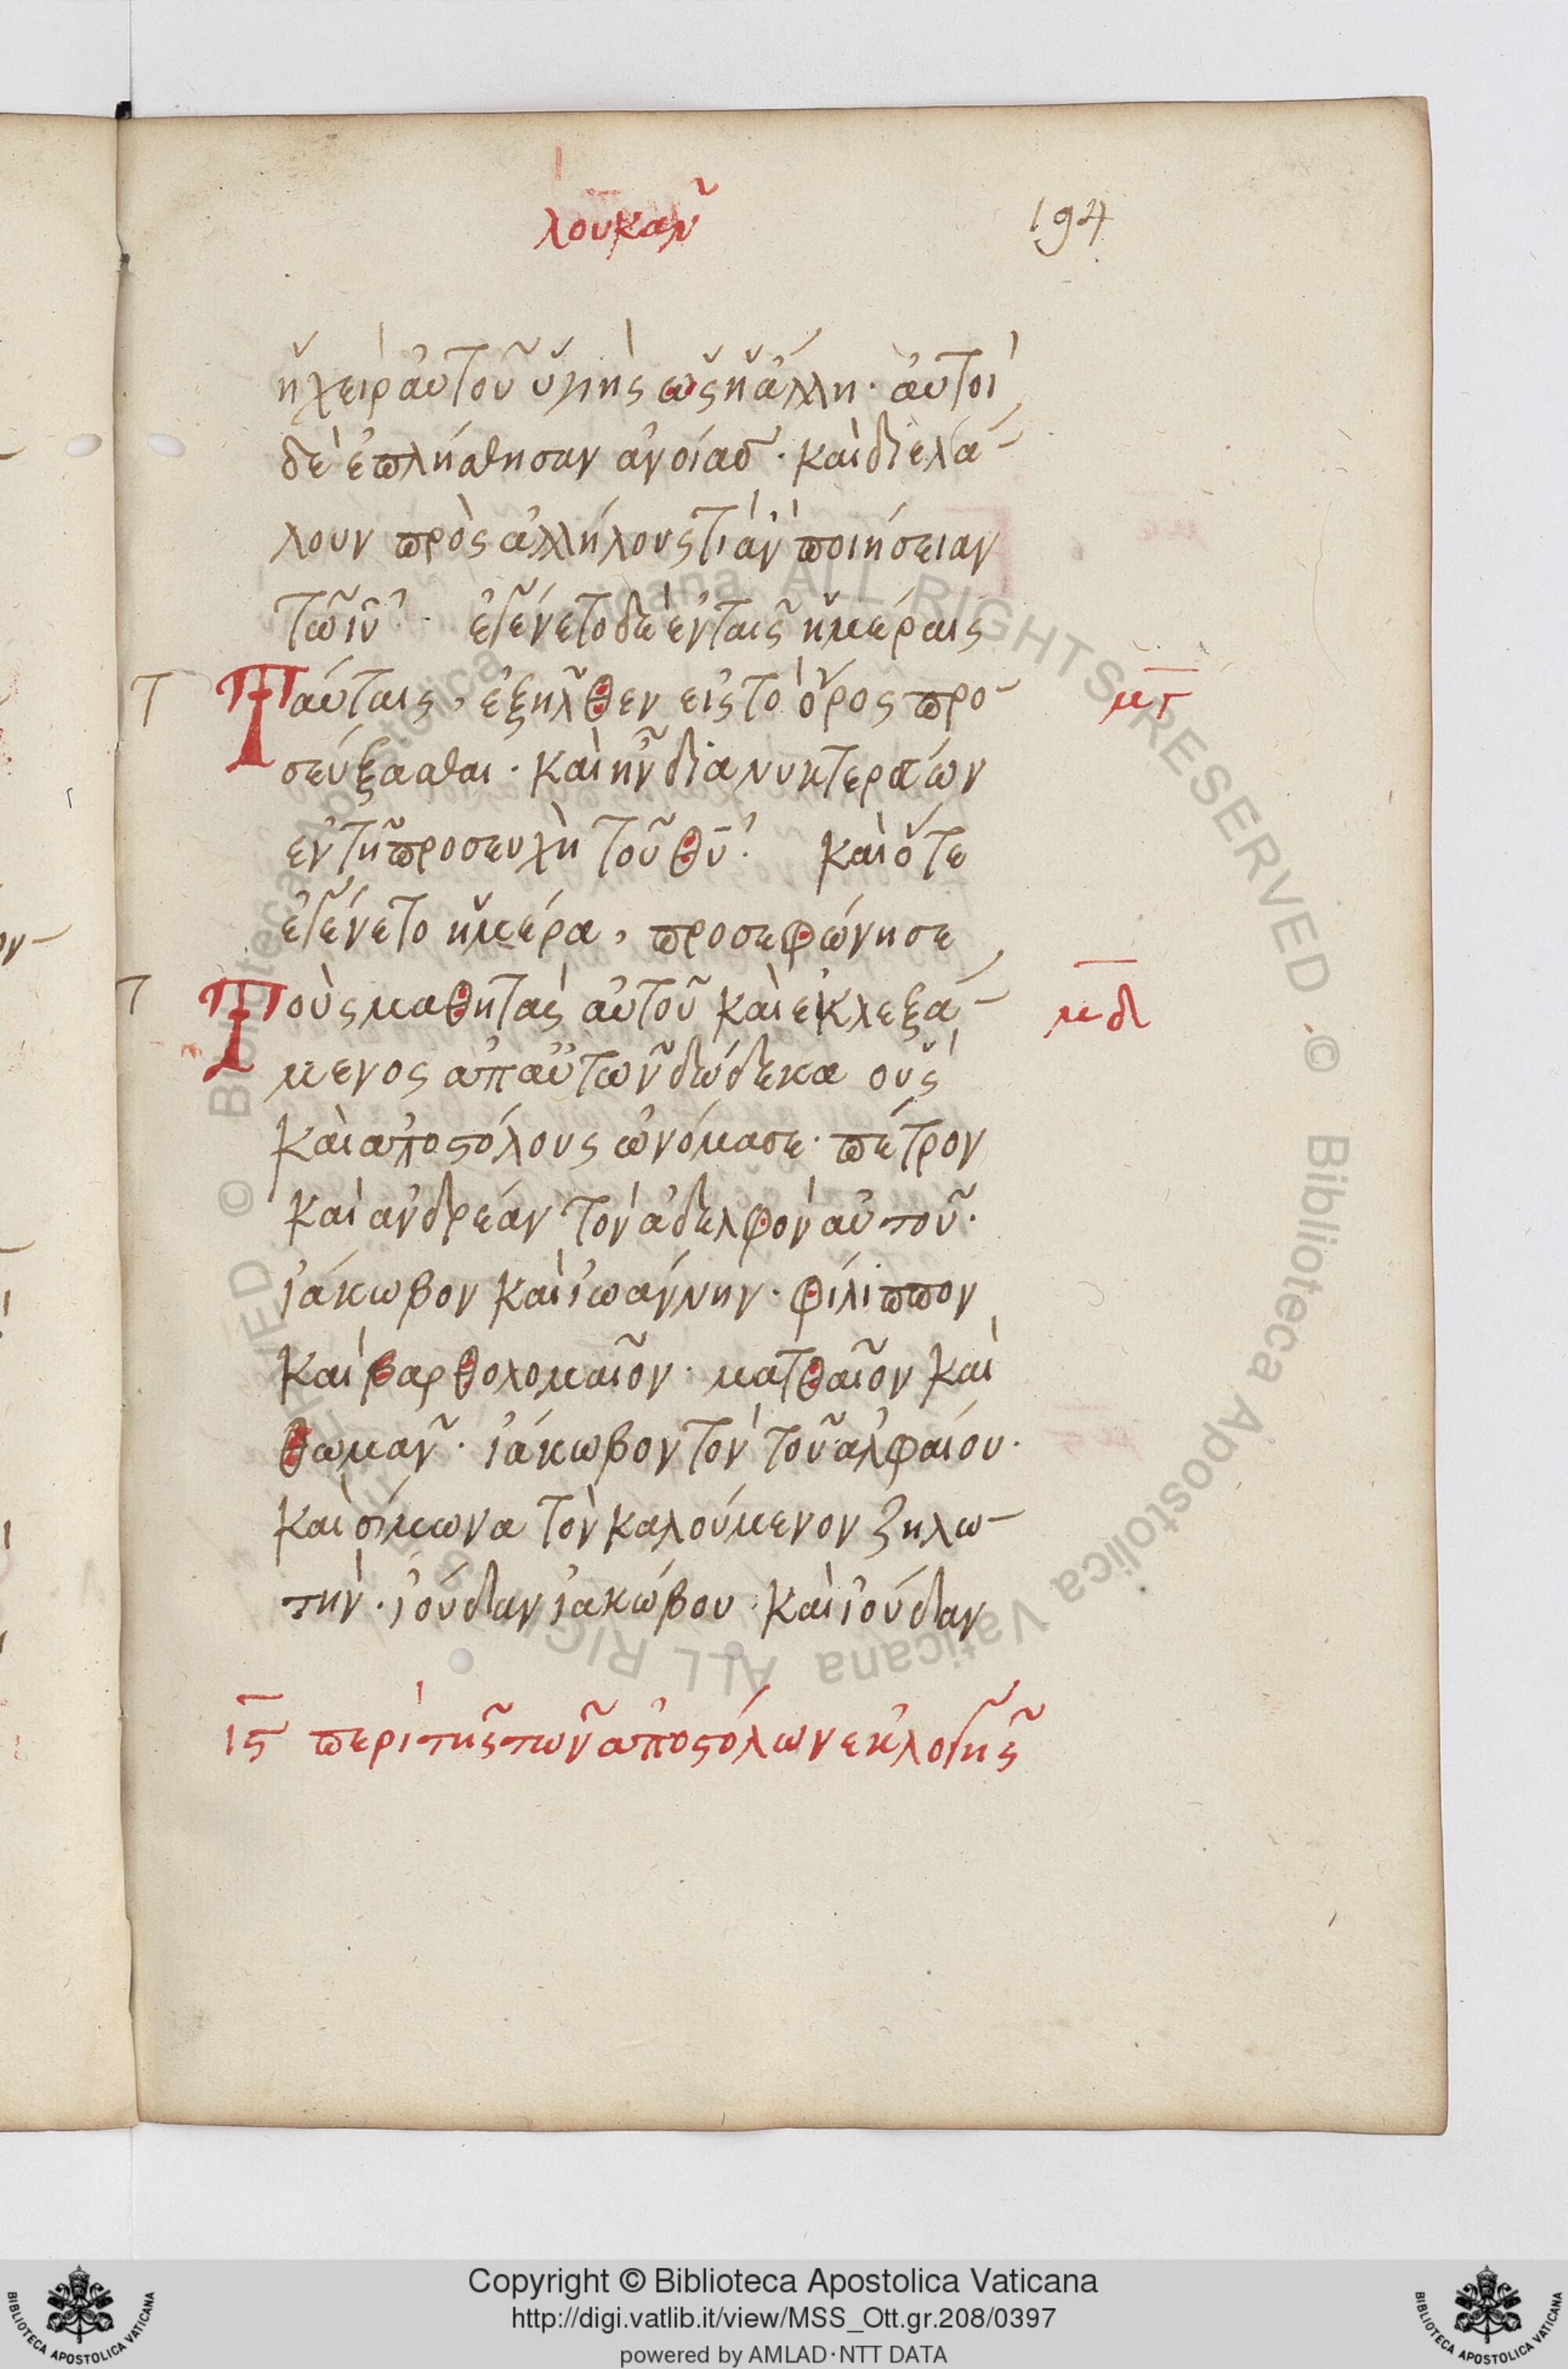 λουκᾶν
194
ἡ χεὶρ αὐτοῦ ὑγιὴς ὡς ἡ ἄλλη · αὐτοὶ
δὲ ἐπλήσθησαν ἀνοίασ · καὶ διελά–
λουν πρὸς ἀλλήλους τὶ ἂν ποιήσειαν
τῶ ιῦ · ἐγένετο δὲ ἐν ταῖς ἡμέραις
τ Ταύταις, ἐξῆλθεν εἰς τὸ ὄρος προ– μγ
σεύξασθαι · καὶ ἦν διανυκτερεύων
ἐν τῆ προσευχῆ τοῦ θῦ · καὶ ὅτε
ἐγένετο ἡμέρα, προσεφώνησε
τ Τοὺς μαθητὰς αὐτοῦ καὶ ἐκλεξά– μδ
μενος ἀπ αὐτῶν δώδεκα οὓς
καὶ ἀποστόλους ὠνόμασε · πέτρον
καὶ ἀνδρέαν τὸν ἀδελφὸν αὐτοῦ ·
ἰάκωβον καὶ ἰωάννην · φίλιππον
καὶ βαρθολομαῖον · ματθαῖον καὶ
θωμᾶν · ἰάκωβον τὸν τοῦ ἀλφαίου ·
καὶ σίμωνα τὸν καλούμενον ζηλω–
τὴν · ἰούδαν ἰακώβου · καὶ ἰούδαν
ιϛ περὶ τῆς τῶν ἀποστόλων ἐκλογῆς
Copyright © Biblioteca Apostolica Vaticana
http://digi.vatlib.it/view/MSS_Ott.gr.208/0397
powered by AMLAD·NTT DATA
BIBLIOTECA APOSTOLICA VATICANA
BIBLIOTECA APOSTOLICA VATICANA
© Biblioteca Apostolica Vaticana ALL RIGHTS RESERVED © Biblioteca Apostolica Vaticana ALL RIGHTS RESERVED